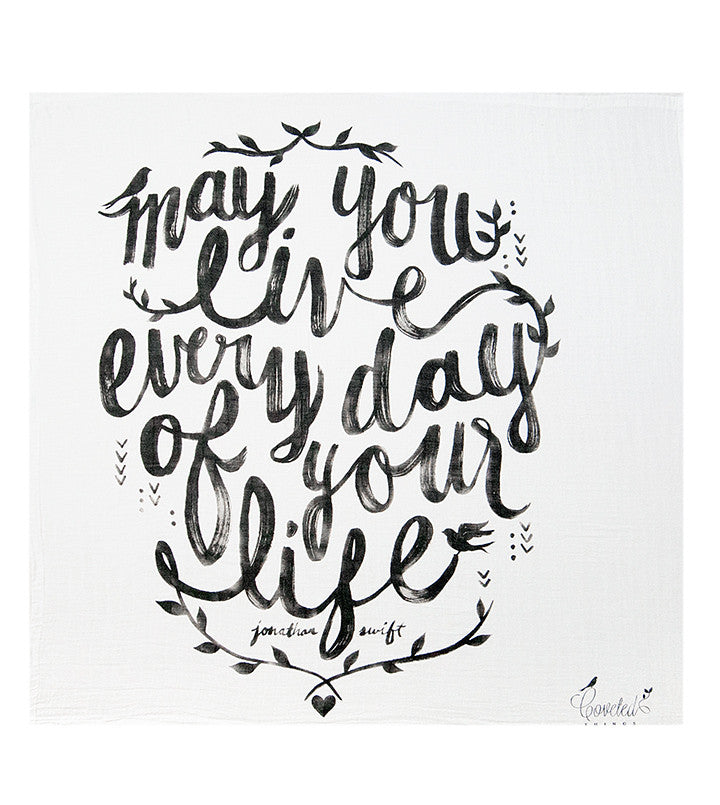 may you
live
every day
of your
life
jonathan swift
Coveted
THINGS